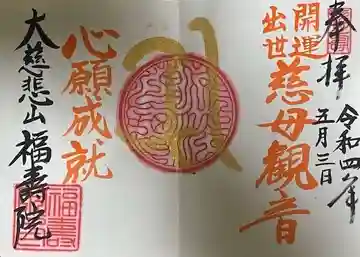 奉拝
令和四年
五月三日
開運
出世
慈母観音
心願成就
大慈悲山
福壽院
福壽